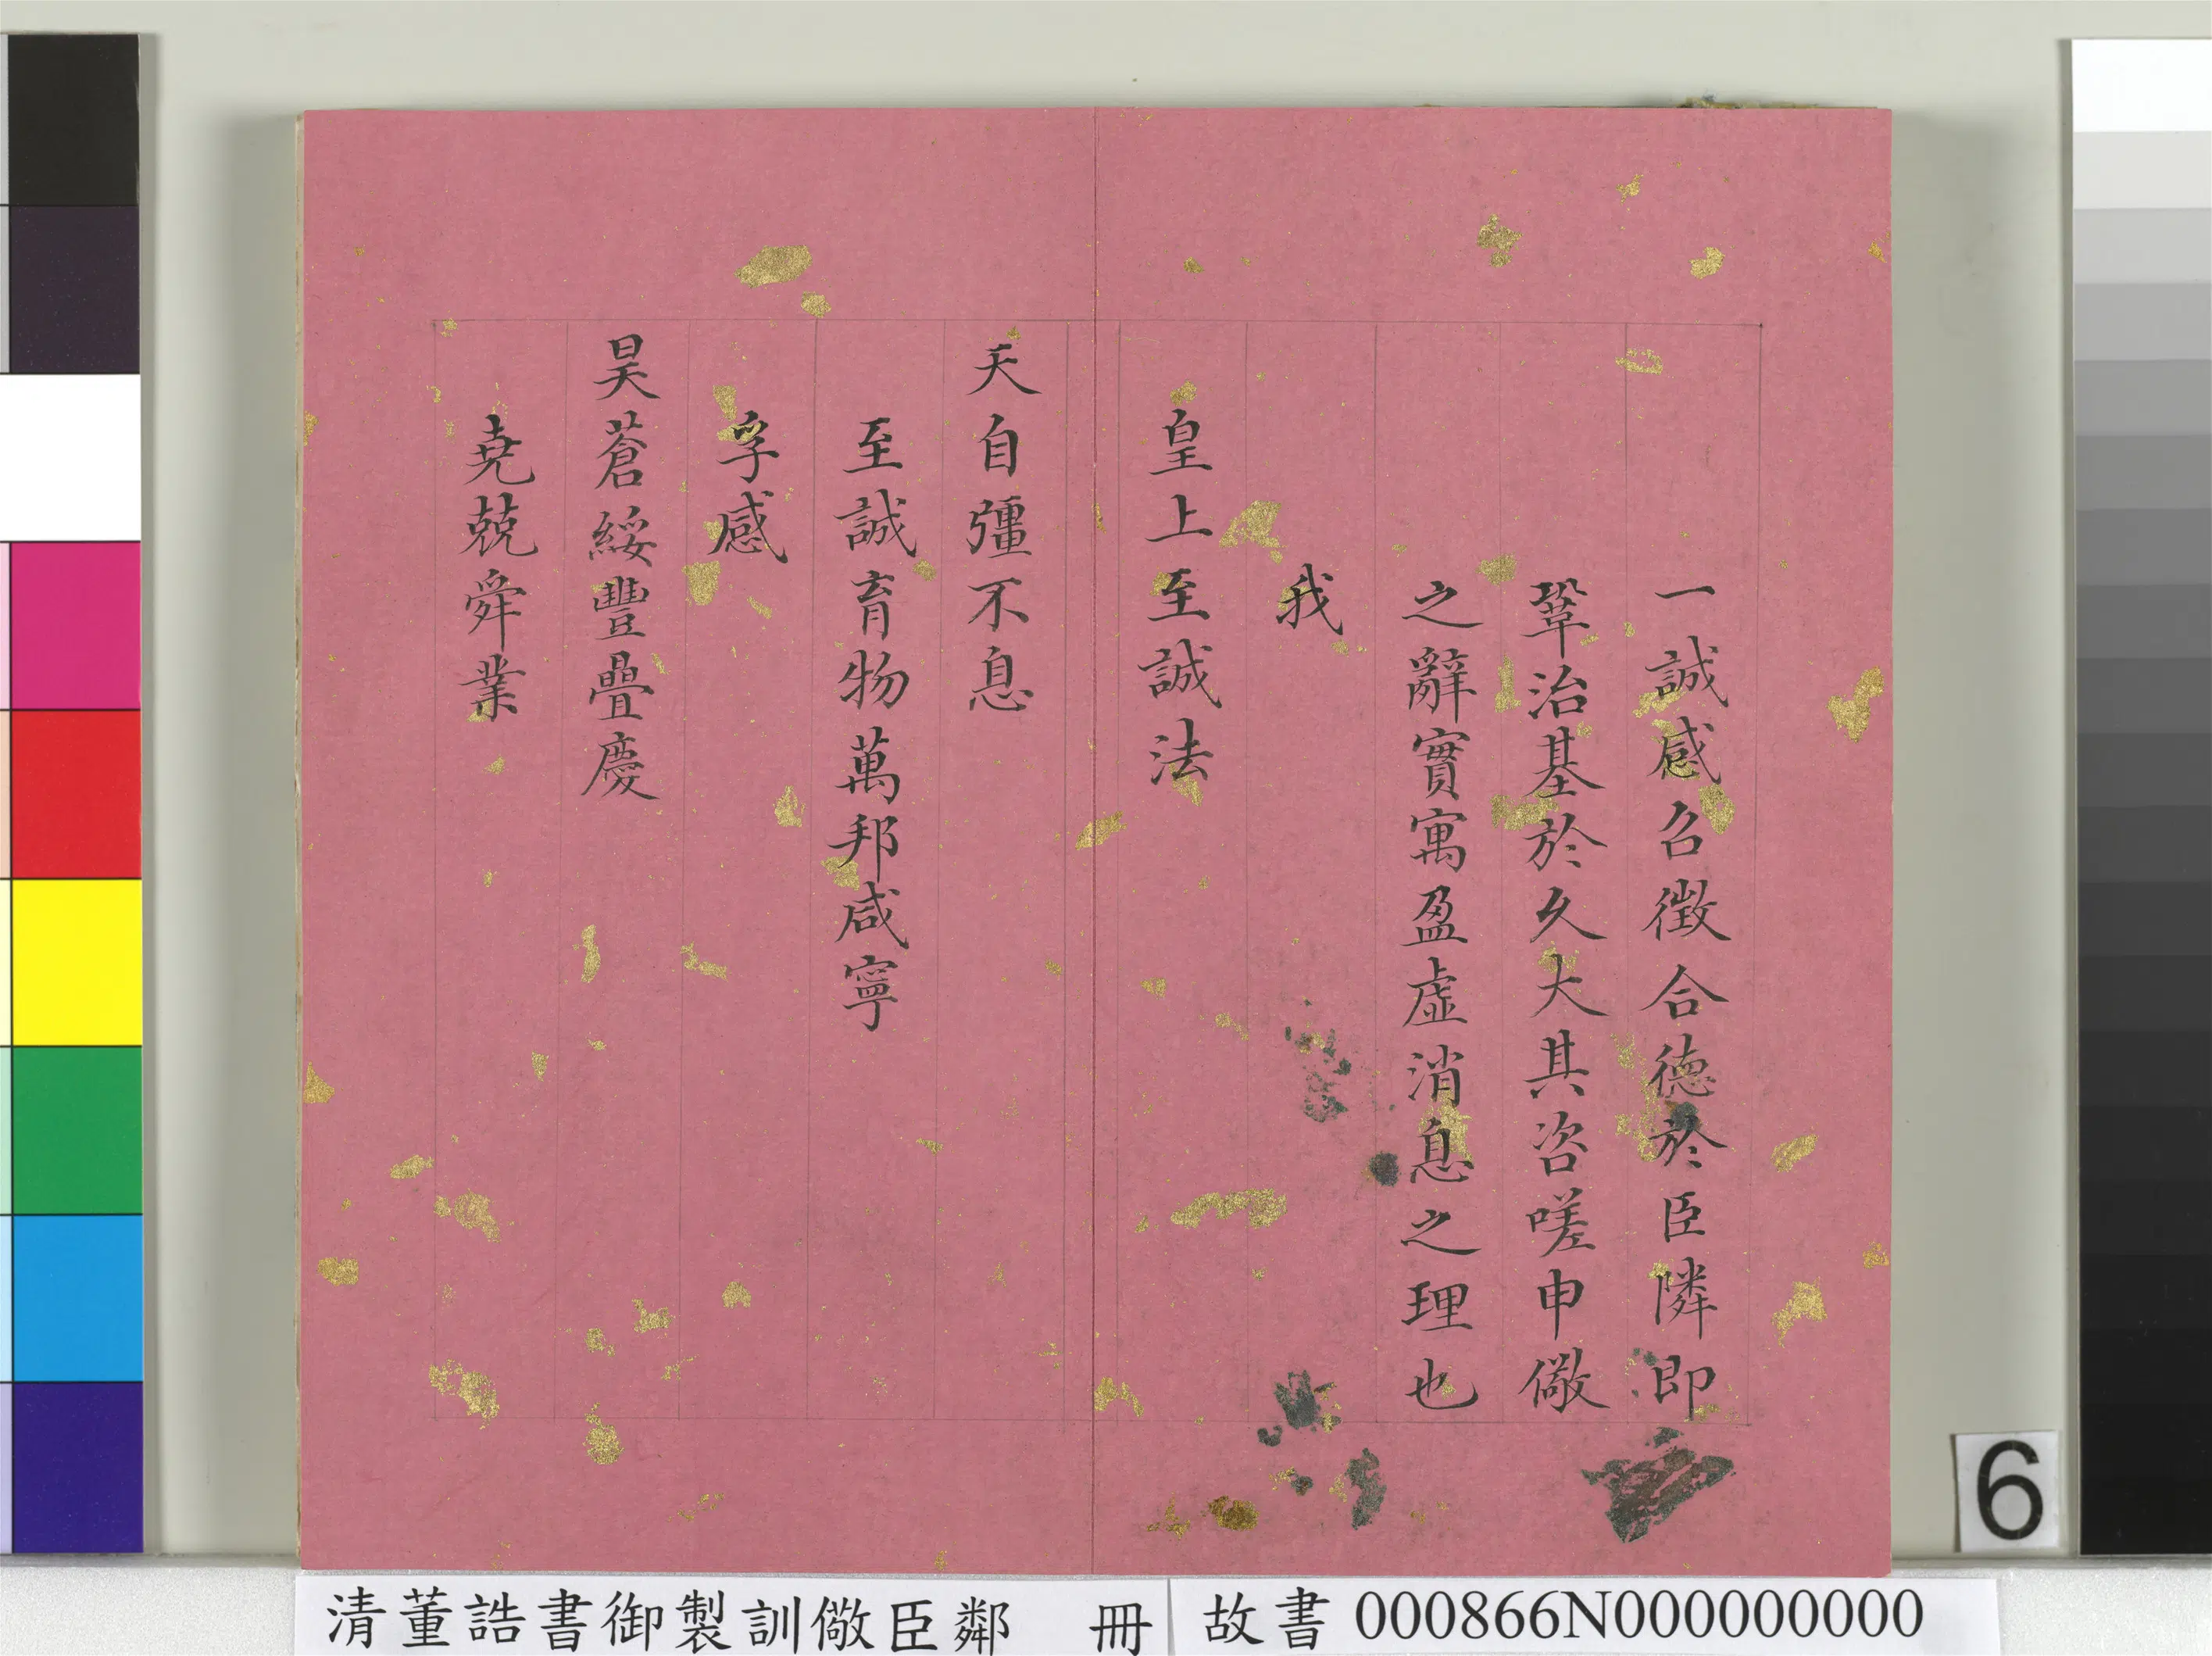 一誠感召徵合德於臣隣即
鞏治基於久大其咨嗟申儆
之辭實寓盈虛消息之理也
我
皇上至誠法
天自彊不息
至誠育物萬邦咸寧
孚感
昊蒼綏豐疊慶
堯兢舜業
6
清董誥書御製訓儆臣鄰　冊
故書 000866N000000000